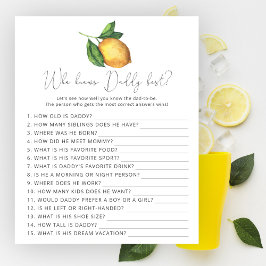 Who knows Daddy best?
Let's see how well you know the dad-to-be.
The person who gets the most correct answers wins!
1. HOW OLD IS DADDY?
2. HOW MANY SIBLINGS DOES HE HAVE?
3. WHERE WAS HE BORN?
4. HOW DID HE MEET MOMMY?
5. WHAT IS HIS FAVORITE FOOD?
6. WHAT IS HIS FAVORITE SPORT?
7. WHAT IS DADDY'S FAVORITE DRINK?
8. IS HE A MORNING OR NIGHT PERSON?
9. WHERE DOES HE WORK?
10. HOW MANY KIDS DOES HE WANT?
11. WOULD DADDY PREFER A BOY OR A GIRL?
12. IS HE LEFT OR RIGHT-HANDED?
13. WHAT IS HIS SHOE SIZE?
14. HOW TALL IS DADDY?
15. WHAT IS HIS DREAM VACATION?